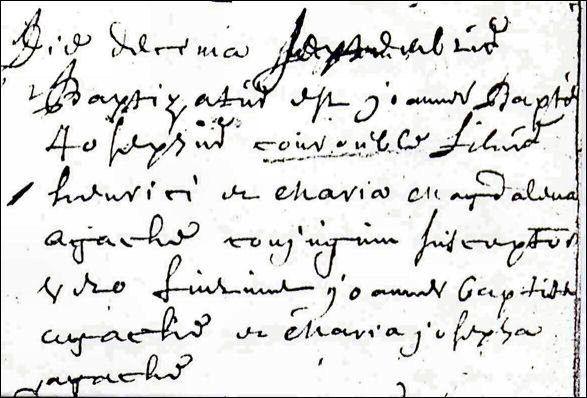 Die decima septembris
Baptizatus est joannes Baptis
Josephus courouble filius
henrici et Maria Magdalena
agache conjugum susceptores
vero fuerunt joannes baptista
agache et Maria josepha
agache